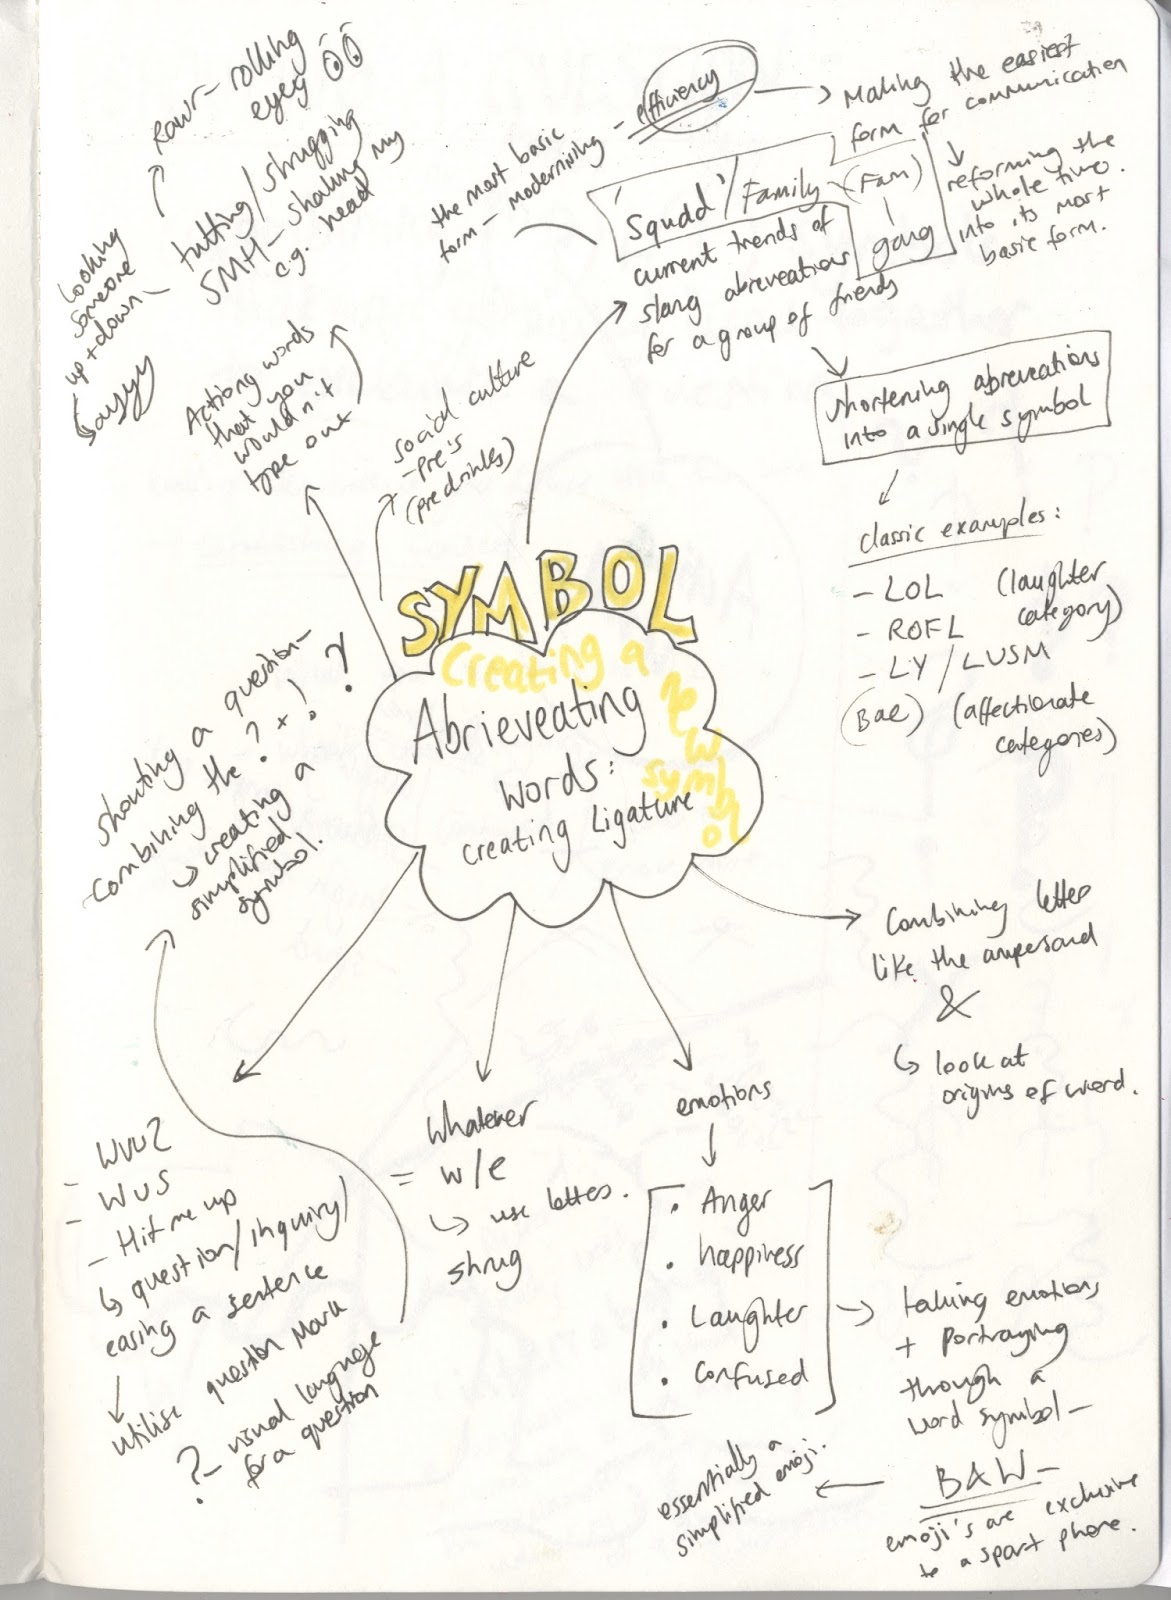 SYMBOL
Creating a
new
symbol
Abrieveating
words:
creating Ligature
Rawr - rolling
eyes
tutting/shrugging
SMH - shaking my
e.g. head
looking
someone
up + down -
Sayyy
Actiong words
that you
wouldn't
type out
social culture
- pre's
(predrinks)
the most basic
form - modernising - efficiency
Making the easiest
form for communication
reforming the
whole time.
into its most
basic form.
'Squdd'/Family - (Fam)
gang
current trends of
slang abreveations
for a group of friends
shortening abreveations
into a single symbol
classic examples:
- LOL (laughter
category)
- ROFL
- LY / LUSM
(Bae) (affectionate
categories)
Combining letter
like the ampersand
&
look at
origins of word.
emotions
• Anger
• happiness
• Laughter
• Confused
taking emotions
+ portraying
through a
word symbol -
BAW -
emoji's are exclusive
to a spart phone.
essentially a
simplified emoji.
Whatever
= w/e
use letters.
shrug
- WUU2
- WUS
- Hit me up
question/inquiry)
easing a sentence
utilise question mark
? - visual language
for a question
shouting a question -
combining the ? + ! ?
creating a
simplified
symbol.